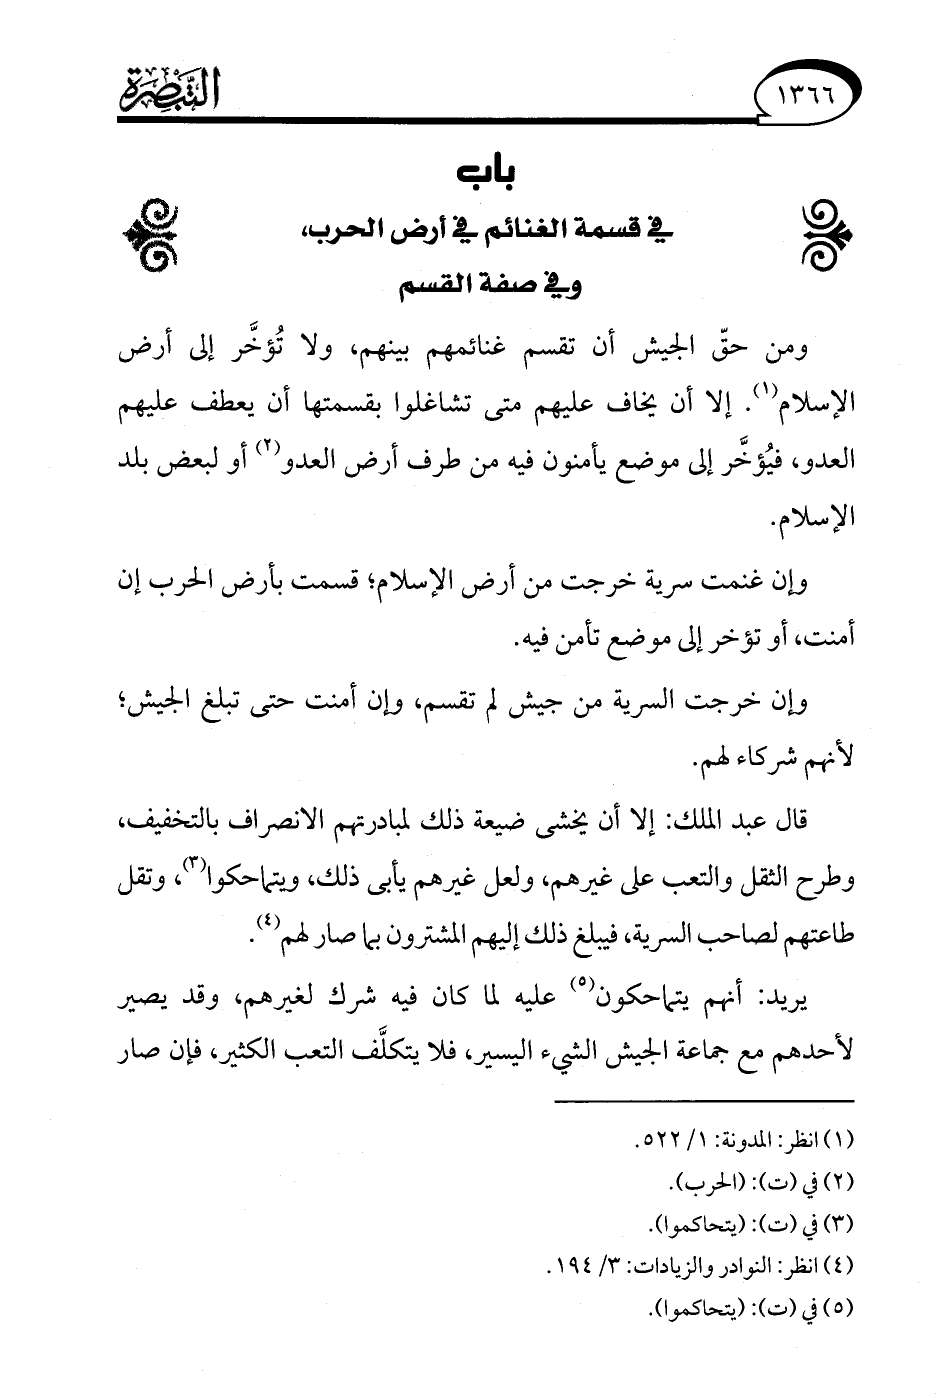 ١٣٦٦
التبصرة
باب
في قسمة الغنائم في أرض الحرب،
وفي صفة القسم
ومن حقّ الجيش أن تقسم غنائمهم بينهم، ولا تُؤخَّر إلى أرض
الإسلام(١). إلا أن يخاف عليهم متى تشاغلوا بقسمتها أن يعطف عليهم
العدو، فيُؤخَّر إلى موضع يأمنون فيه من طرف أرض العدو(٢) أو لبعض بلد
الإسلام.
وإن غنمت سرية خرجت من أرض الإسلام؛ قسمت بأرض الحرب إن
أمنت، أو تؤخر إلى موضع تأمن فيه.
وإن خرجت السرية من جيش لم تقسم، وإن أمنت حتى تبلغ الجيش؛
لأنهم شركاء لهم.
قال عبد الملك: إلا أن يخشى ضيعة ذلك لمبادرتهم الانصراف بالتخفيف،
وطرح الثقل والتعب على غيرهم، ولعل غيرهم يأبى ذلك، ويتماحكوا(٣)، وتقل
طاعتهم لصاحب السرية، فيبلغ ذلك إليهم المشترون بما صار لهم(٤).
يريد: أنهم يتماحكون(٥) عليه لما كان فيه شرك لغيرهم، وقد يصير
لأحدهم مع جماعة الجيش الشيء اليسير، فلا يتكلَّف التعب الكثير، فإن صار
(١) انظر: المدونة: ١/ ٥٢٢.
(٢) في (ت): (الحرب).
(٣) في (ت): (يتحاكموا).
(٤) انظر: النوادر والزيادات: ٣/ ١٩٤.
(٥) في (ت): (يتحاكموا).